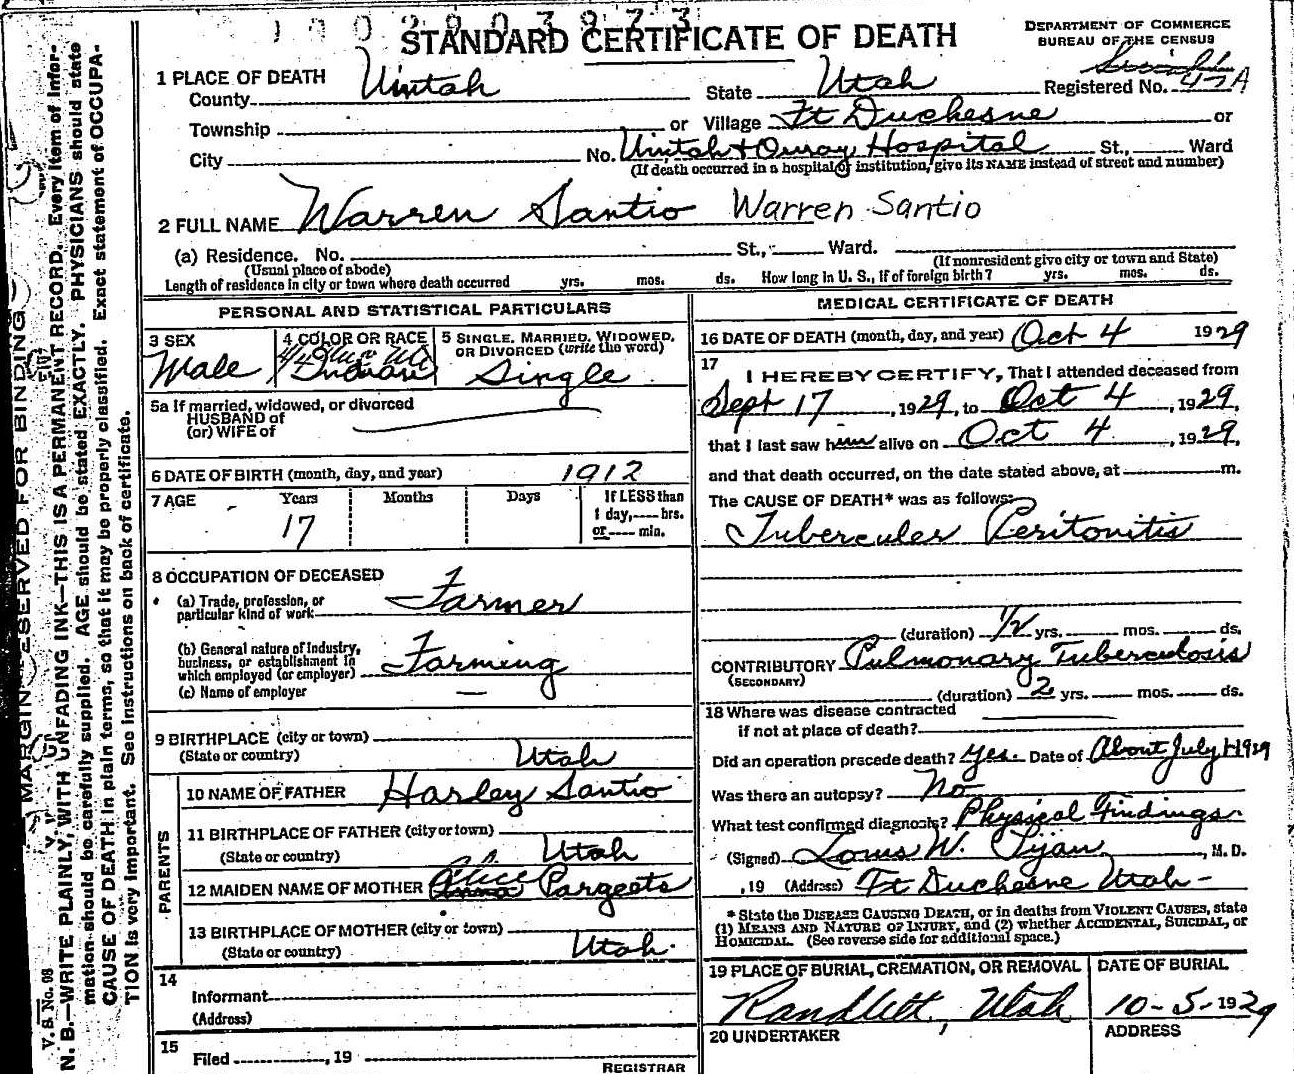 STANDARD CERTIFICATE OF DEATH
DEPARTMENT OF COMMERCE
BUREAU OF THE CENSUS
1 PLACE OF DEATH
County Uintah State Utah Registered No. 47A
Township or Village Ft Duchesne or
City No. Uintah & Ouray Hospital St., Ward
(If death occurred in a hospital or institution, give its NAME instead of street and number)
2 FULL NAME Warren Santio Warren Santio
(a) Residence. No. St., Ward.
(Usual place of abode) (If nonresident give city or town and State)
Length of residence in city or town where death occurred yrs. mos. ds. How long in U. S., if of foreign birth? yrs. mos. ds.
PERSONAL AND STATISTICAL PARTICULARS
3 SEX 4 COLOR OR RACE 5 SINGLE, MARRIED, WIDOWED, OR DIVORCED (write the word)
Male 4/4 Indian Single
5a If married, widowed, or divorced
HUSBAND of
(or) WIFE of
6 DATE OF BIRTH (month, day, and year) 1912
7 AGE Years Months Days If LESS than
1 day, hrs.
or min.
17
8 OCCUPATION OF DECEASED
(a) Trade, profession, or
particular kind of work Farmer
(b) General nature of industry,
business, or establishment in
which employed (or employer) Farming
(c) Name of employer —
9 BIRTHPLACE (city or town)
(State or country) Utah
PARENTS
10 NAME OF FATHER Harley Santio
11 BIRTHPLACE OF FATHER (city or town)
(State or country) Utah
12 MAIDEN NAME OF MOTHER Alice Anna Pargeets
13 BIRTHPLACE OF MOTHER (city or town)
(State or country) Utah.
14
Informant
(Address)
15
Filed , 19
REGISTRAR
MEDICAL CERTIFICATE OF DEATH
16 DATE OF DEATH (month, day, and year) Oct 4 1929
17
I HEREBY CERTIFY, That I attended deceased from
Sept 17, 1929, to Oct 4, 1929,
that I last saw him alive on Oct 4, 1929,
and that death occurred, on the date stated above, at m.
The CAUSE OF DEATH* was as follows:
Tubercular Peritonitis
(duration) 1/2 yrs. mos. ds.
CONTRIBUTORY Pulmonary Tuberculosis
(SECONDARY)
(duration) 2 yrs. mos. ds.
18 Where was disease contracted
if not at place of death?
Did an operation precede death? Yes. Date of About July 1-1929
Was there an autopsy? No
What test confirmed diagnosis? Physical Findings
(Signed) Louis W. Tijan, M. D.
, 19 (Address) Ft Duchesne Utah -
* State the DISEASE CAUSING DEATH, or in deaths from VIOLENT CAUSES, state
(1) MEANS AND NATURE OF INJURY, and (2) whether ACCIDENTAL, SUICIDAL, or
HOMICIDAL. (See reverse side for additional space.)
19 PLACE OF BURIAL, CREMATION, OR REMOVAL DATE OF BURIAL
Randlett, Utah 10-5-1929
20 UNDERTAKER ADDRESS
MARGIN RESERVED FOR BINDING
V. S. No. 98
N. B.—WRITE PLAINLY, WITH UNFADING INK—THIS IS A PERMANENT RECORD. Every item of infor-
mation should be carefully supplied. AGE should be stated EXACTLY. PHYSICIANS should state
CAUSE OF DEATH in plain terms, so that it may be properly classified. Exact statement of OCCUPA-
TION is very important. See instructions on back of certificate.